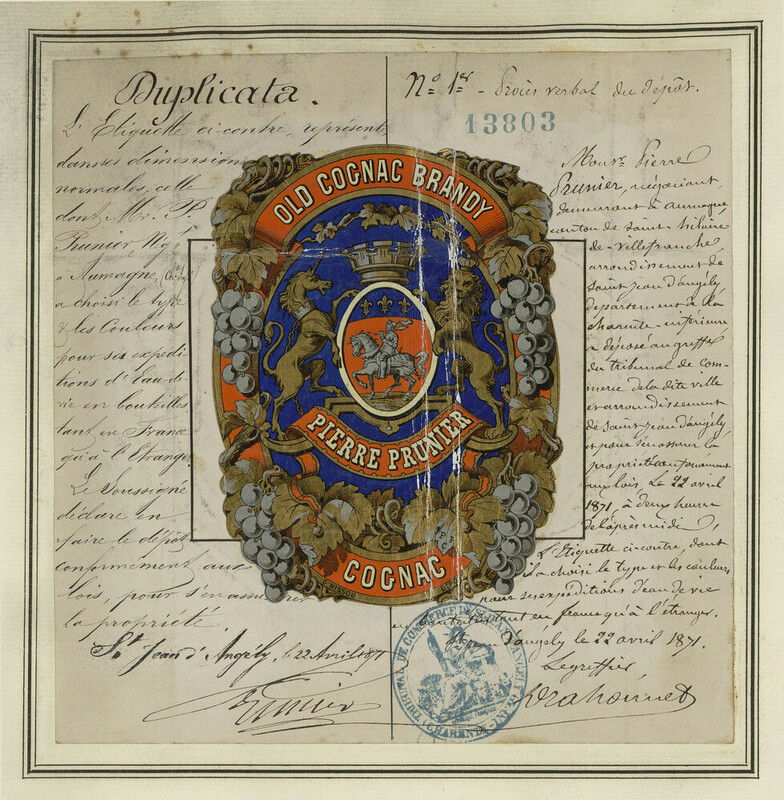 Duplicata.
L'Etiquette ci-contre, représente
dans ses dimensions
normales, celle
dont Mr. P.
Prunier, Ngt
à Aumagne,
a choisi le type
& les Couleurs
pour ses expédi-
tions d'Eau-de-
vie en bouteilles
tant en France
qu'à l'Etranger.
Le Soussigné
déclare en
faire le dépôt
conformement aux
lois, pour s'en assurer
la propriété.
St Jean d'Angely, le 22 Avril 1871
Prunier
No 1er - Procès verbal du dépôt.
13803
Monsr Pierre
Prunier, négociant,
demeurant à aumagne
canton de Saint-hilaire
de-villefranche
arrondissement de
Saint Jean d'angély
département de la
charente-inférieure
a déposé au greffe
du tribunal de com-
merce de la dite ville
et arrondissement
de Saint-Jean d'angély
et pour s'en assurer la
propriété conformément
aux lois, le 22 avril
1871, à deux heures
de l'après midi,
L'Etiquette ci-contre, dont
il a choisi le type et les couleurs
pour ses expéditions d'eau de vie
en bouteilles tant en france qu'à l'étranger.
St Jean d'angély le 22 avril 1871.
Le greffier
OLD COGNAC BRANDY
PIERRE PRUNIER
P.P.
COGNAC
TRIBUNAL DE COMMERCE DE ST JEAN D'ANGELY
(CHARENTE-INF.)